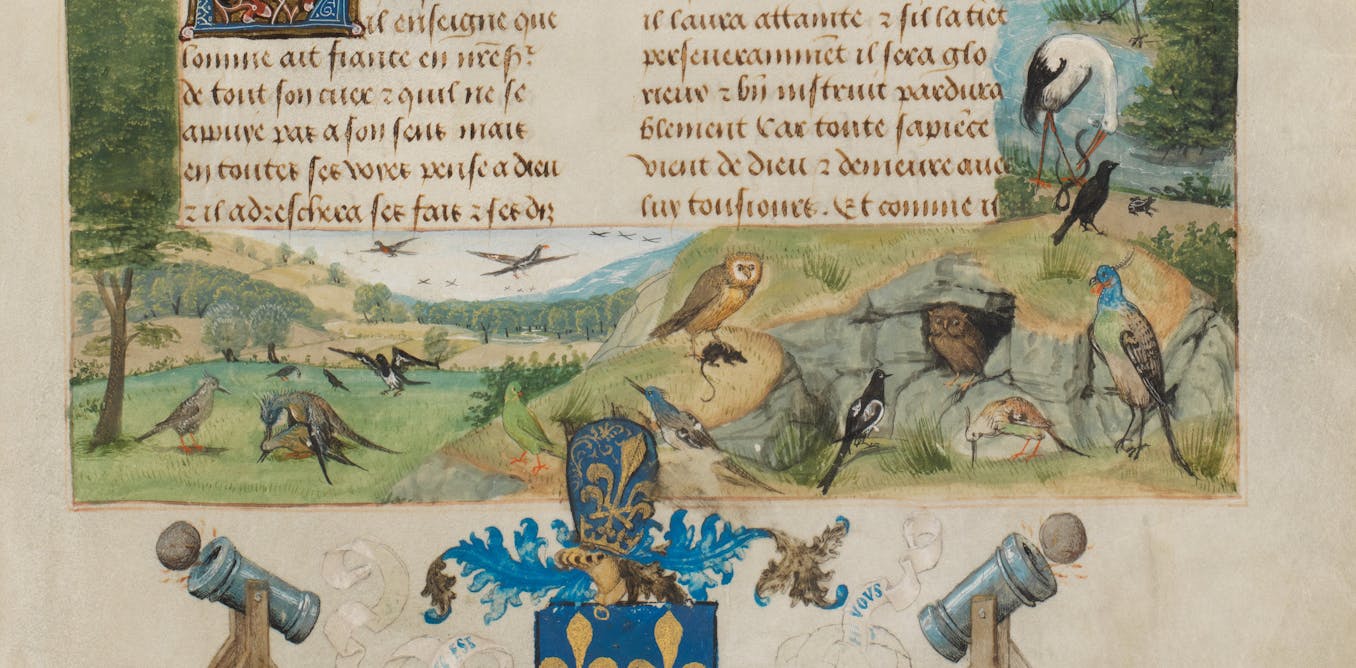 il enseigne que
lomme ait fiance en nr̃e sr̃
de tout son cuer ⁊ quil ne se
appuye pas a son sens mais
en toutes ses voyes pense a dieu
⁊ il adreschera ses fais ⁊ ses diz
il laura attainte ⁊ sil la tiēt
perseueramment il sera glo
rieux ⁊ bn̄ instruit pardura
blement Car toute sapiēce
vient de dieu ⁊ demeure auec
luy tousiours. Et comme il
EST
VOVS